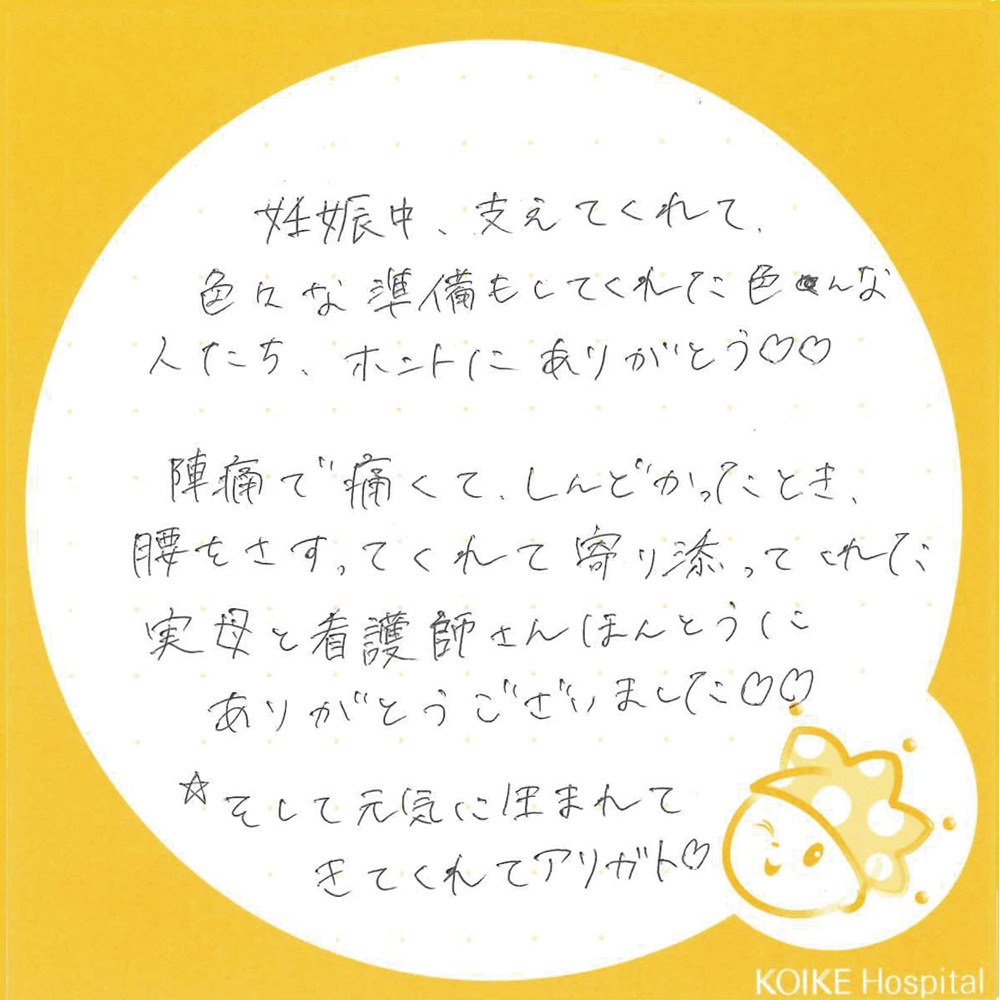 妊娠中、支えてくれて、
色々な準備もしてくれた色んな
人たち、ホントにありがとう♡♡
陣痛で痛くて、しんどかったとき、
腰をさすってくれて寄り添ってくれた
実母と看護師さんほんとうに
ありがとうございました♡♡
☆そして元気に生まれて
きてくれてアリガト♡
KOIKE Hospital